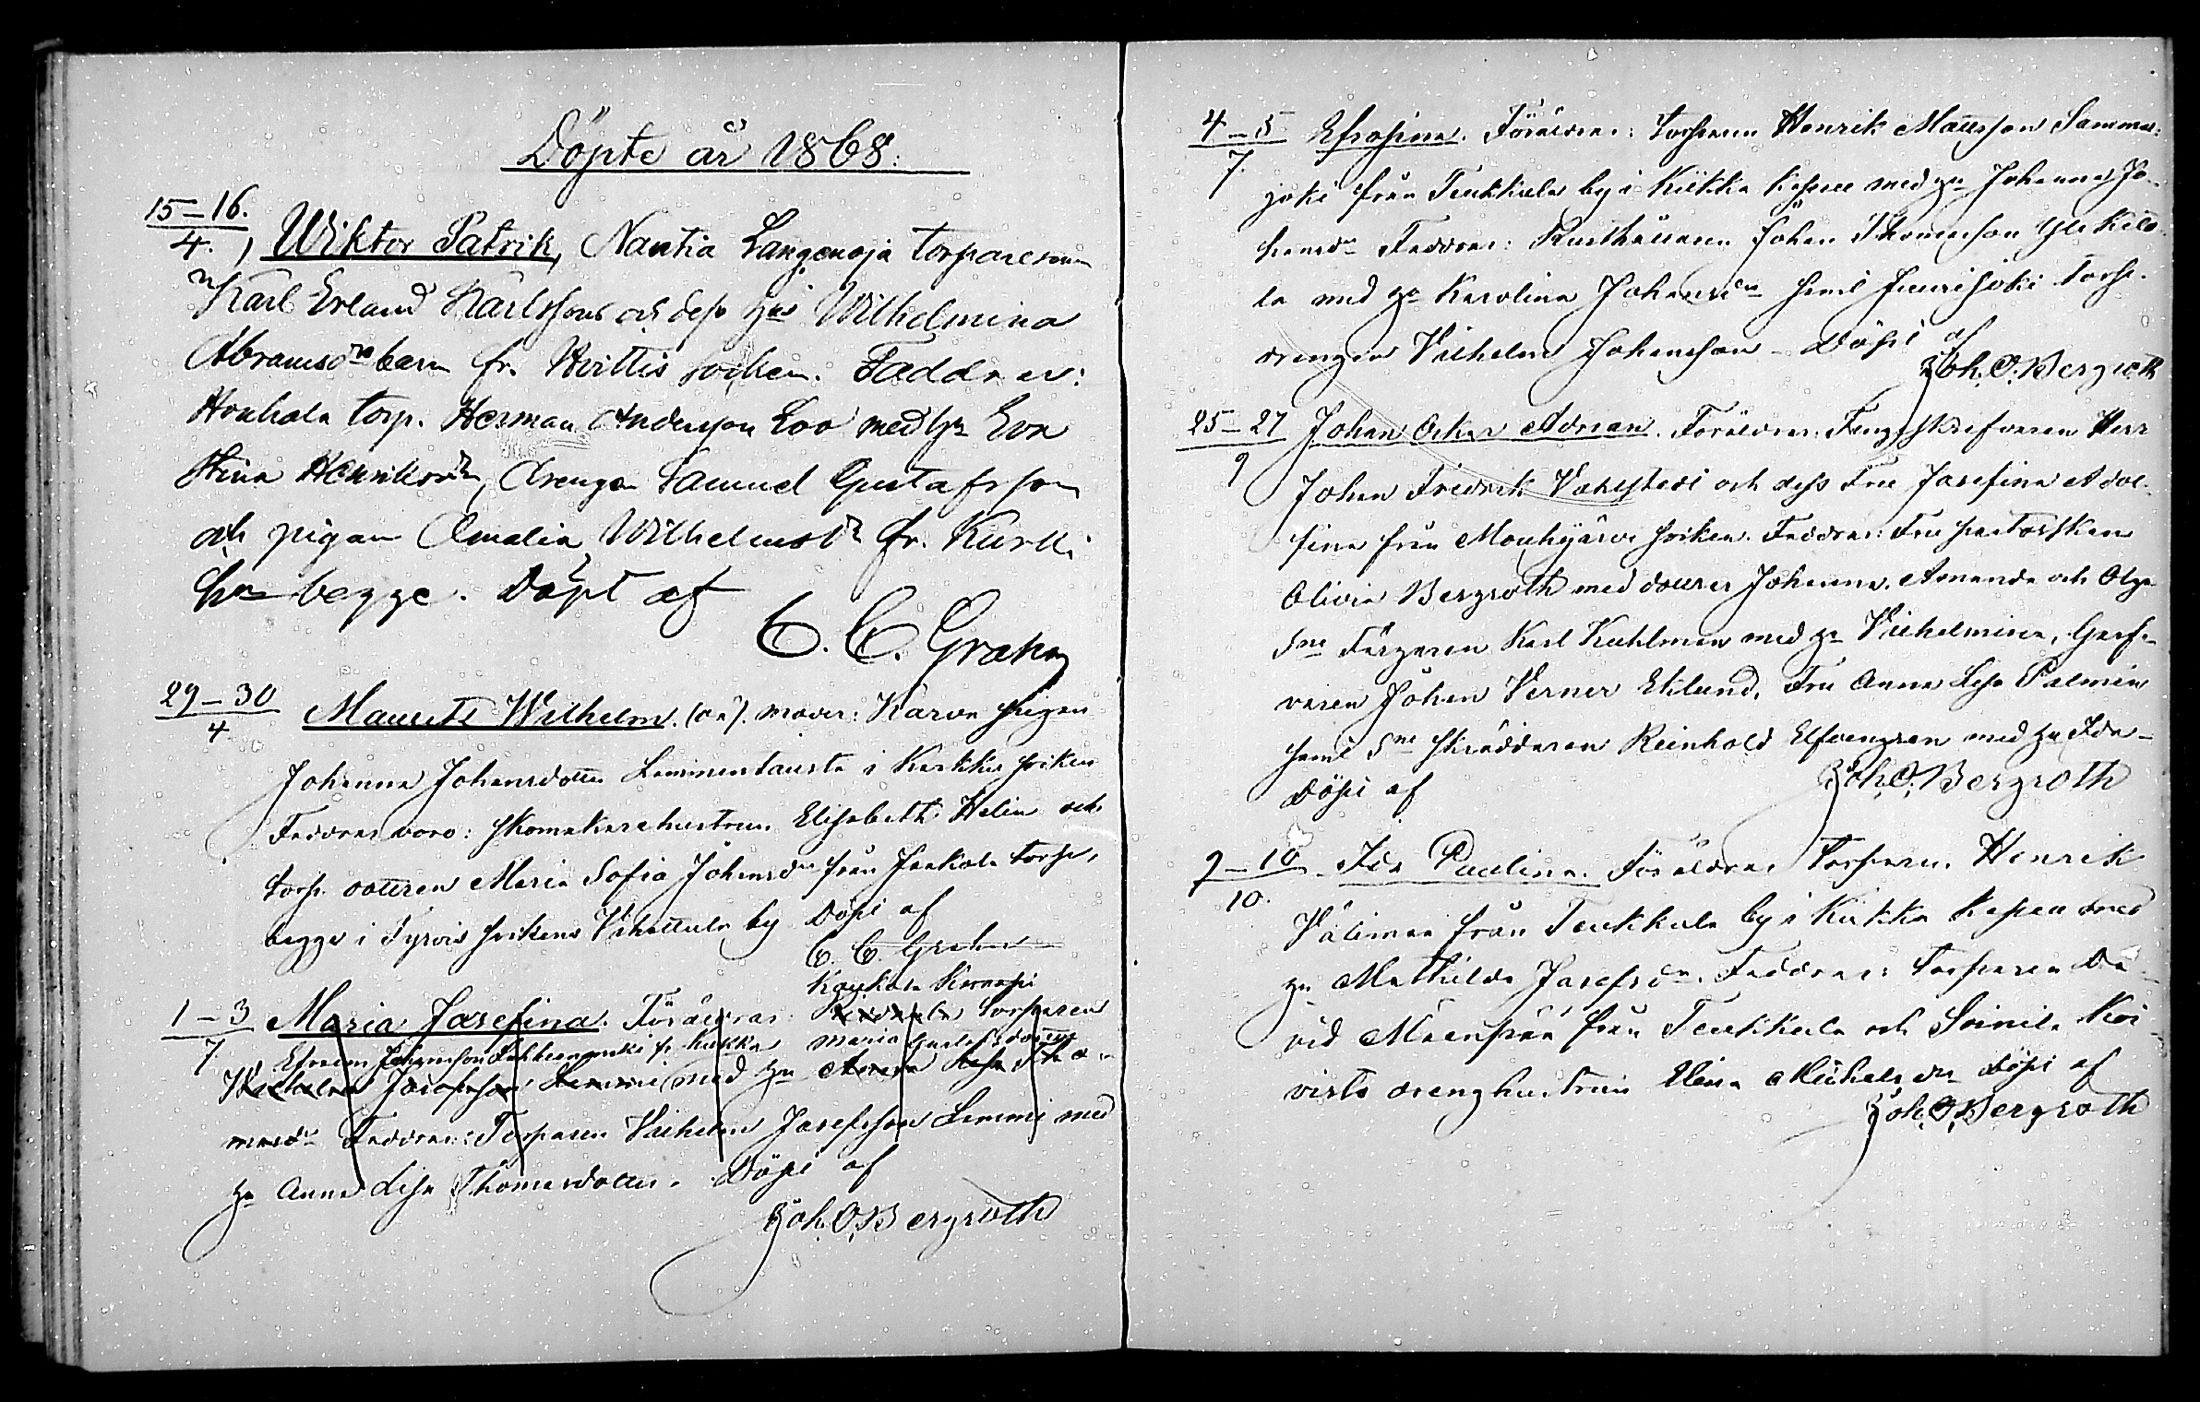 Döpte år 1868.
15-16.
4. , Wiktor Patrik, Nantia Langenoja torparesonen
Karl Erland Karlssons och dess hus Wilhelmina
Abramsdrs barn fr. Hvittis socken. Faddrar:
Houhala torp. Herman Andersson Loo med h. Eva
Stina Henriksdr, drengen Samuel Gustafsson
och pigan Amalia Wilhelmsdr fr. Kurkki
hn begge. Döpt af
C. C. Grahn
29-30
4 Maurits Wilhelm. (oä). moder: Karva pigan
Johanna Johansdotter Lemmentausta i Karkku socken
Faddrar voro: skomakarehustrun Elisabeth Helin och
torp. dottren Maria Sofia Johansdr från torp,
begge i Tyrvis sockens Vihattula by Döpt af
C. C. Grahn
Kaukola Knaapi
1-3 Maria Josefina. Föräldrar: torparen
7 Efraim Johansson fr. Kiikka Maria Gustafsdotter
Wilhelm Josefsson Lemmi med hu Anna Lisa Tho-
masdr Faddrar: Torparen Vilhelm Josefsson Lemmi med
hu Anna Lisa Thomasdotter. Döpt af
Joh. O. Bergroth
4-5 Efrosina. Föräldrar: Torparen Henrik Mattsson Samma-
7. joki från Teukkula by i Kiikka kapell med hu Johanna Jo-
hansdr Faddrar: Rusthållaren Johan Thomasson Yli Kila-
la med hu Karolina Johansdr saml torp.
drengen Vilhelm Johansson - Döpt af
Joh. O. Bergroth
25-27 Johan Oskar Adrian. Föräldrar: Herr
9 Johan Fredrik och dess Fru Josefina Adol-
fina från Mouhijärvi socken. Faddrar: Fru pastorskan
Olivia Bergroth med döttrar Johanna, Amanda och Olga
Färgaren Karl Kuhlman med hu Vilhelmina, Garf-
varen Johan Verner Eklund, Fru Anna Lisa Palmén
saml skräddaren Reinhold Elfvengren med hu Ida -
Döpt af Joh. O. Bergroth
9-10 Ida Paulina. Föräldrar Torparen Henrik
10. Välimaa från Teukkula by i Kiikka kapell med
hu Mathilda Josefsdr. Faddrar: Torparen Da-
vid Mäenpää från Teukkula och Soinila Koi-
visto drenghustrun Elina Michelsdr Döpt af
Joh. O. Bergroth